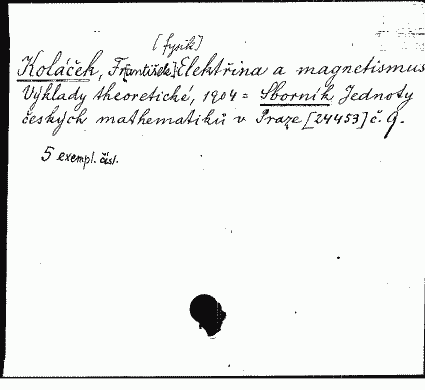 [fysik]
Koláček, František: Elektřina a magnetismus
Výklady theoretické, 1904 = Sborník Jednoty
českých mathematiků v Praze [24453] č. 9.
5 exempl. čísl.